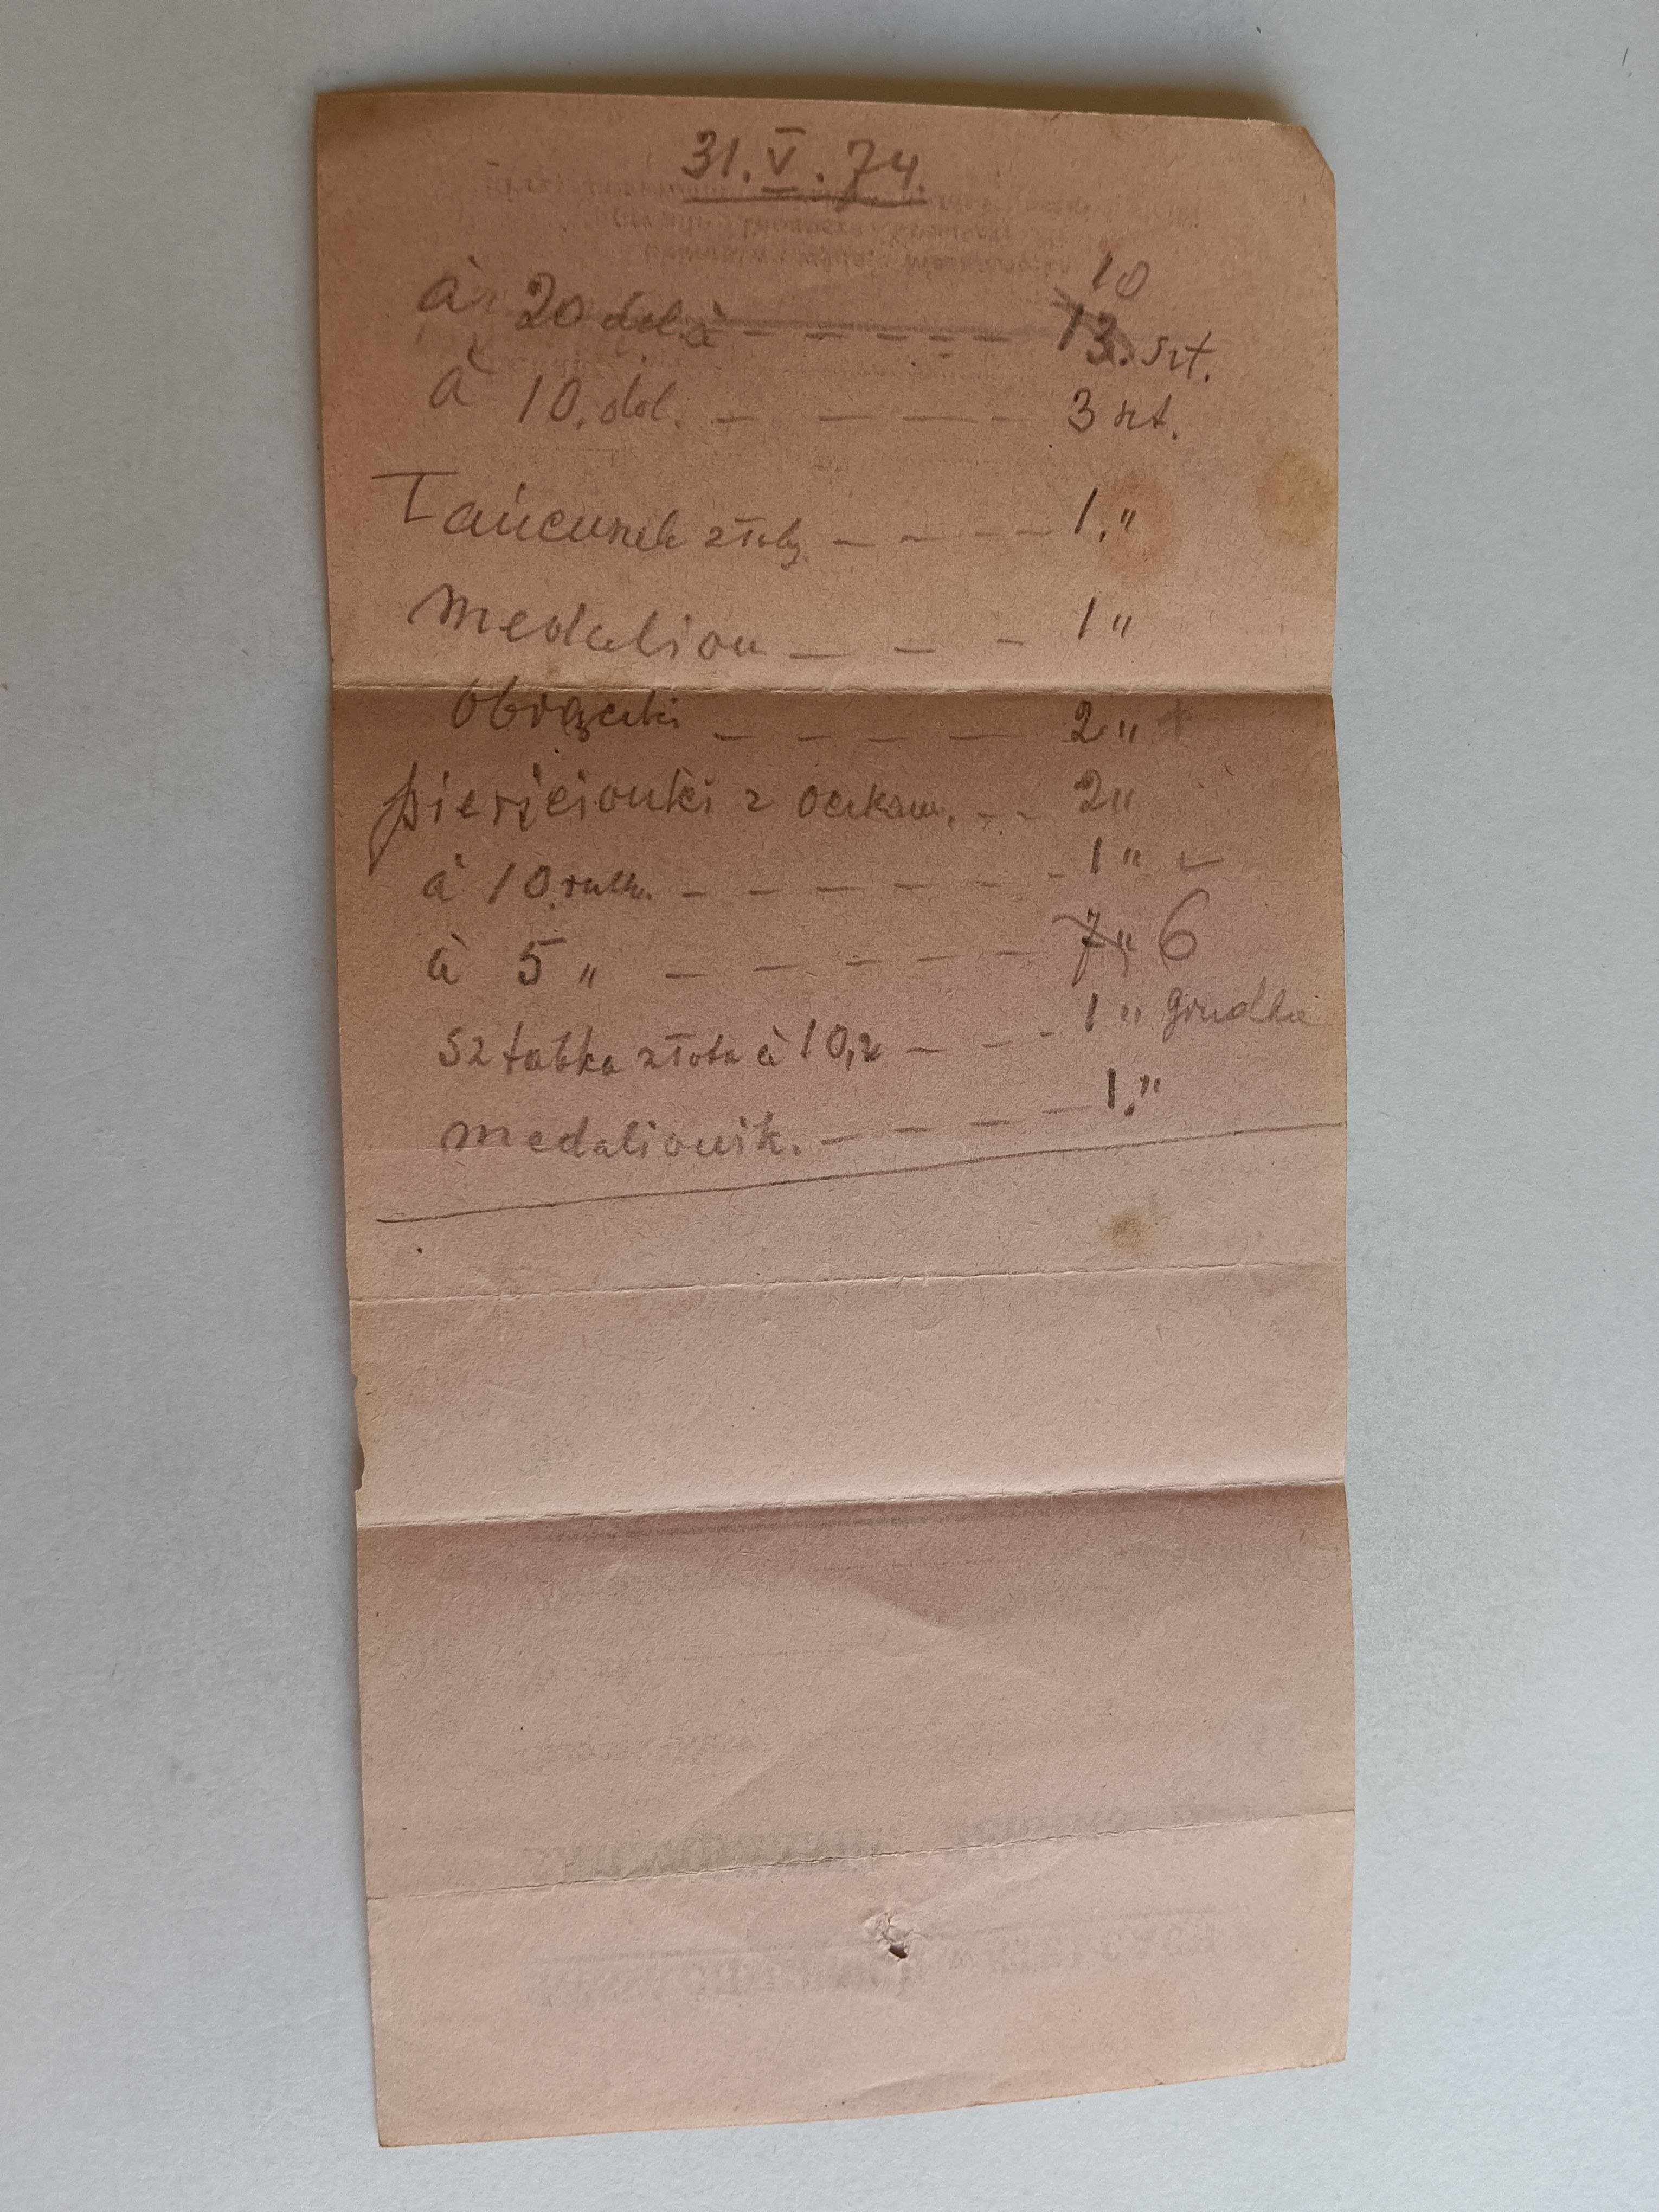 31.V.74.
10
à 20 dol à - - - - - 13. szt.
à 10. dol. - - - - 3 szt.
Łańcuszek złoty - - - - 1. "
Medalion - - - 1 "
Obrączki - - - - 2 "
pierścionki z oczkam. - - 2 "
à 10 rubl. - - - - - 1 "
à 5 " - - - - - 7 " 6
Sztabka złota à 10, - - - 1 " grudka
medalionik. - - - - 1. "